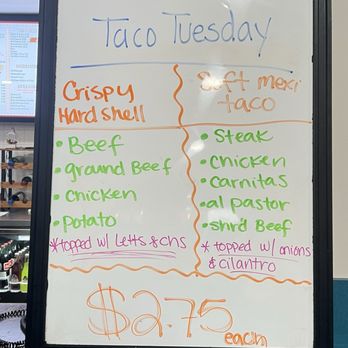 Taco Tuesday
Crispy
Hard shell
• Beef
• ground Beef
• chicken
• potato
*topped w/ Letts & chs
Soft mexi
taco
• Steak
• Chicken
• Carnitas
• al pastor
• shrd Beef
* topped w/ onions
& cilantro
$2.75
each